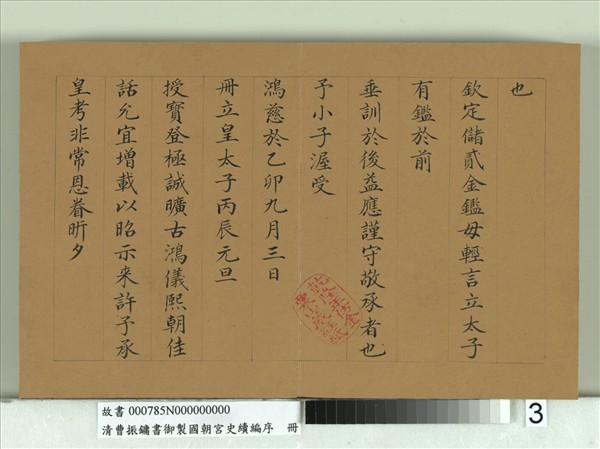 也
欽定儲貳金鑑毋輕言立太子
有鑑於前
垂訓於後益應謹守敬承者也
予小子渥受
鴻慈於乙卯九月三日
冊立皇太子丙辰元旦
授寶登極誠曠古鴻儀熙朝佳
話允宜增載以昭示來許予承
皇考非常恩眷昕夕
故書 000785N000000000
清曹振鏞書御製國朝宮史續編序 冊
3